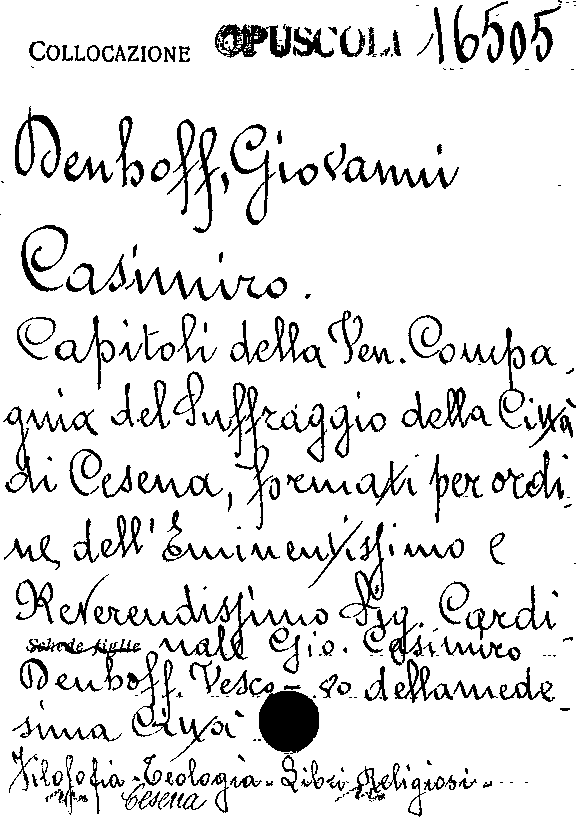 COLLOCAZIONE OPUSCOLI 16505
Denhoff, Giovanni
Casimiro.
Capitoli della Ven. Compa-
gnia del Suffraggio della Città
di Cesena, formati per ordi-
ne dell'Eminentissimo e
Reverendissimo Sig. Cardi-
Schede figlie nale Gio. Casimiro
Denhoff. Vesco- vo dellamede-
sima Città
Filosofia - Teologia - Libri Religiosi -
Cesena